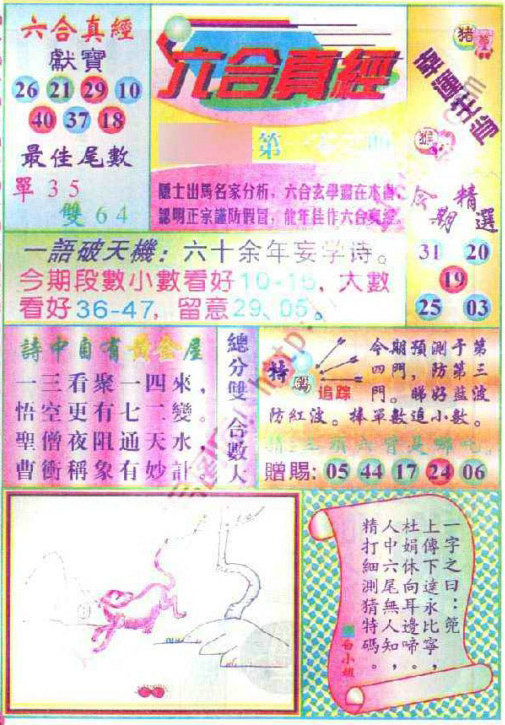 六合真經
獻寶
26 21 29 10
40 37 18
最佳尾數
單 35
雙 64
六合真經
第
猪
幸運生肖
猴
隱士出馬名家分析,六合玄學盡在本
認明正宗謹防假冒,龍年佳作六合真經
今期精選
31 20
19
25 03
一語破天機:六十余年妄学诗。
今期段數小數看好10-16,大數
看好36-47,留意29、05。
詩中自有黃金屋
一三看聚一四來,
悟空更有七二變。
聖僧夜阻通天水,
曹衝稱象有妙計
總分雙 合數大
特碼
追踪
今期預測于第
四門,防第三
門。睇好藍波
防紅波。捧單數追小數。
贈賜: 05 44 17 24 06
一字之曰:蔸
上傳下達永比寧,
杜娟休向耳邊啼,
人中六尾無人知,
精打細測猜特碼。
白小姐